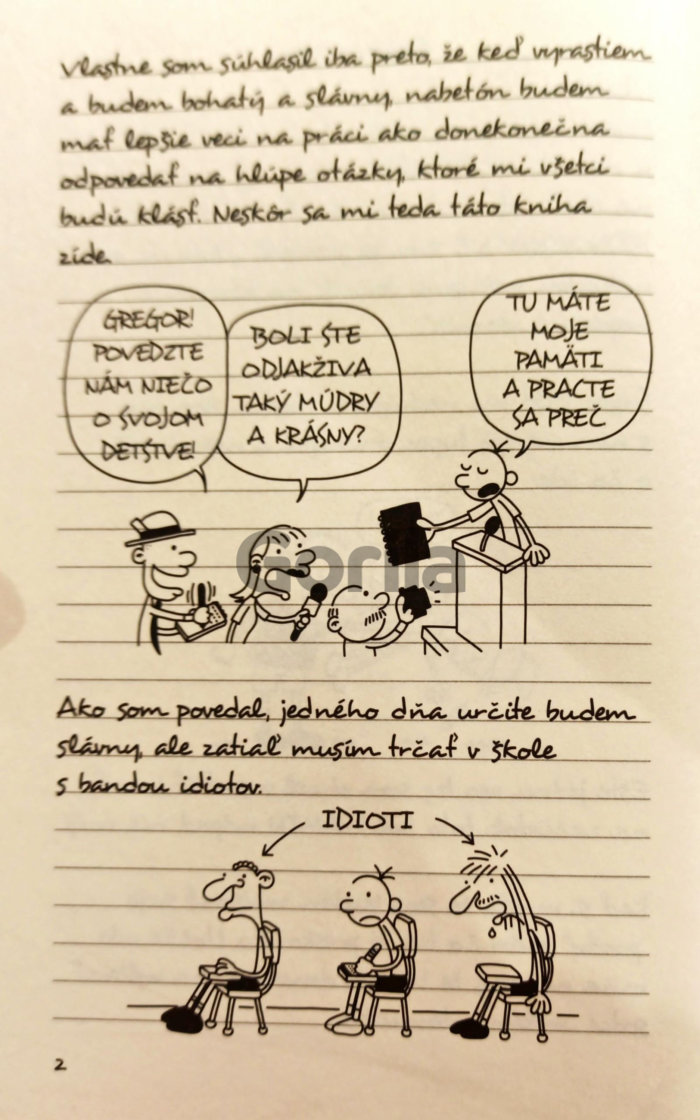 Vlastne som súhlasil iba preto, že keď vyrastiem
a budem bohatý a slávny, nabetón budem
mať lepšie veci na práci ako donekonečna
odpovedať na hlúpe otázky, ktoré mi všetci
budú klásť. Neskôr sa mi teda táto kniha
zíde.
GREGOR!
POVEDZTE
NÁM NIEČO
O SVOJOM
DETSTVE!
BOLI STE
ODJAKŽIVA
TAKÝ MÚDRY
A KRÁSNY?
TU MÁTE
MOJE
PAMÄTI
A PRACTE
SA PREČ
Gorila
Ako som povedal, jedného dňa určite budem
slávny, ale zatiaľ musím trčať v škole
s bandou idiotov.
IDIOTI
2